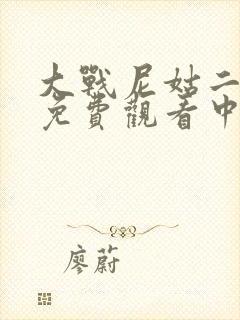 大戰尼姑二
免費觀看中
廖蔚